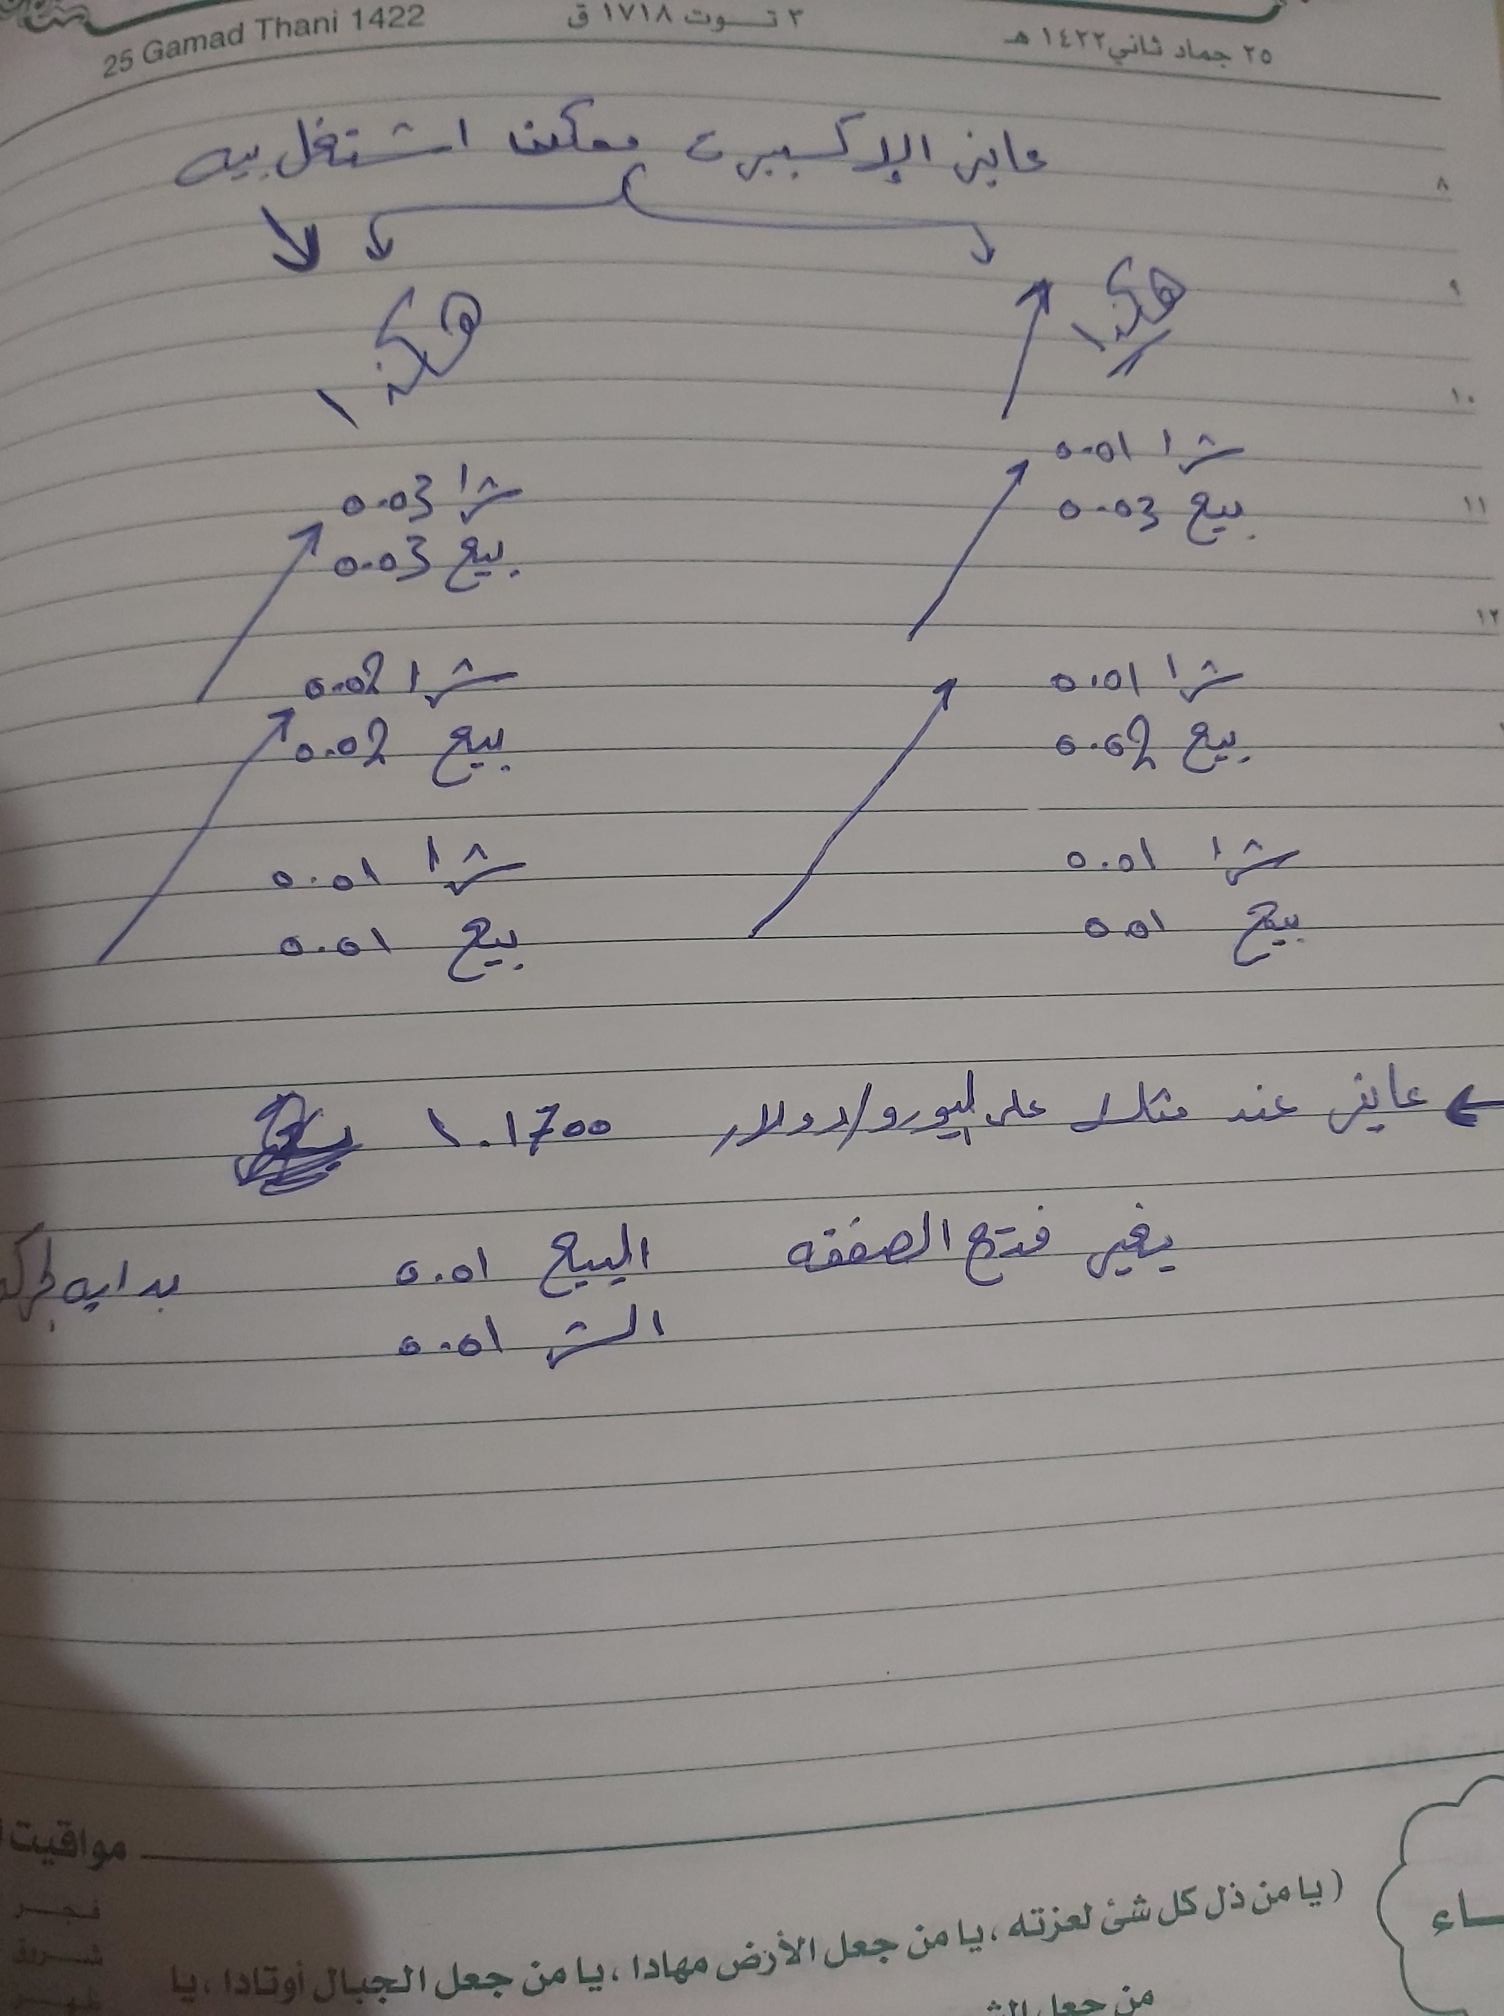 25 Gamad Thani 1422
٣ تـــوت ١٧١٨ ق
٢٥ جماد ثاني ١٤٢٢ هـ
عايز الإكسبيرت ممكن اشتغل بيه
٨
هكذا
هكذا
٩
١٠
شرا 0.01
بيع 0.03
١١
شرا 0.03
بيع 0.03
١٢
شرا 0.01
بيع 0.02
شرا 0.02
بيع 0.02
شرا 0.01
بيع 0.01
شرا 0.01
بيع 0.01
عايز عند مثلا على اليورو/دولار 1.1700
يغير فتح الصفقه البيع 0.01 بدايه
الشرا 0.01
مواقيت
فجـــر
شـــروق
ظهـــر
(يا من ذل كل شئ لعزته، يا من جعل الأرض مهادا، يا من جعل الجبال أوتادا، يا
من جعل